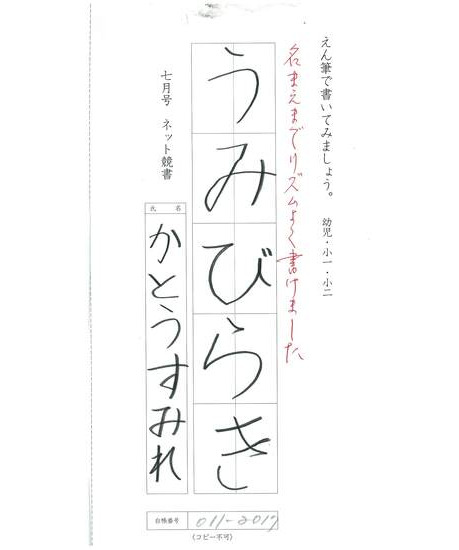 えん筆で書いてみましょう。 幼児・小一・小二
名まえまでリズムよく書けました
うみびらき
七月号 ネット競書
氏名
かとうすみれ
台帳番号 011-2017
(コピー不可)